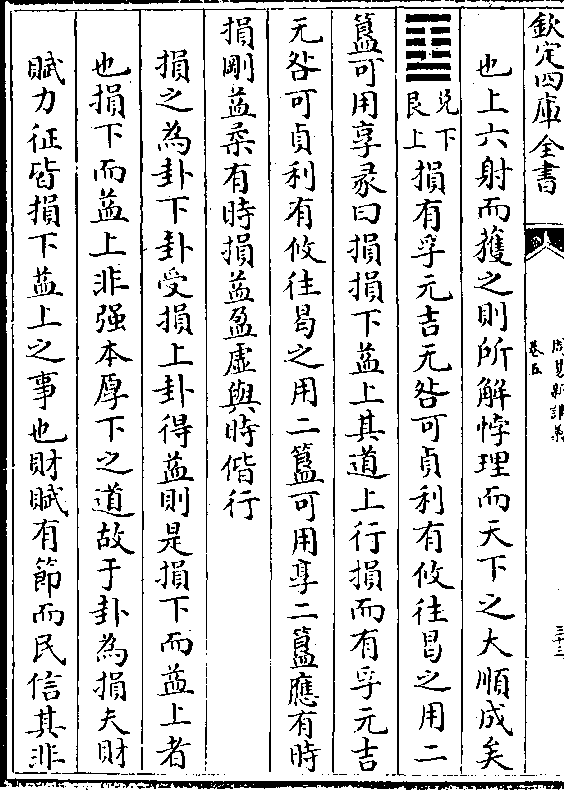 欽定四庫全書
周易新講義
卷五
三十三
也上六射而獲之則所解悖理而天下之大順成矣
兌下
艮上
損有孚元吉无咎可貞利有攸往曷之用二
簋可用享彖曰損損下益上其道上行損而有孚元吉
无咎可貞利有攸往曷之用二簋可用享二簋應有時
損剛益柔有時損益盈虛與時偕行
損之為卦下卦受損上卦得益則是損下而益上者
也損下而益上非强本厚下之道故于卦為損夫財
賦力征皆損下益上之事也財賦有節而民信其非